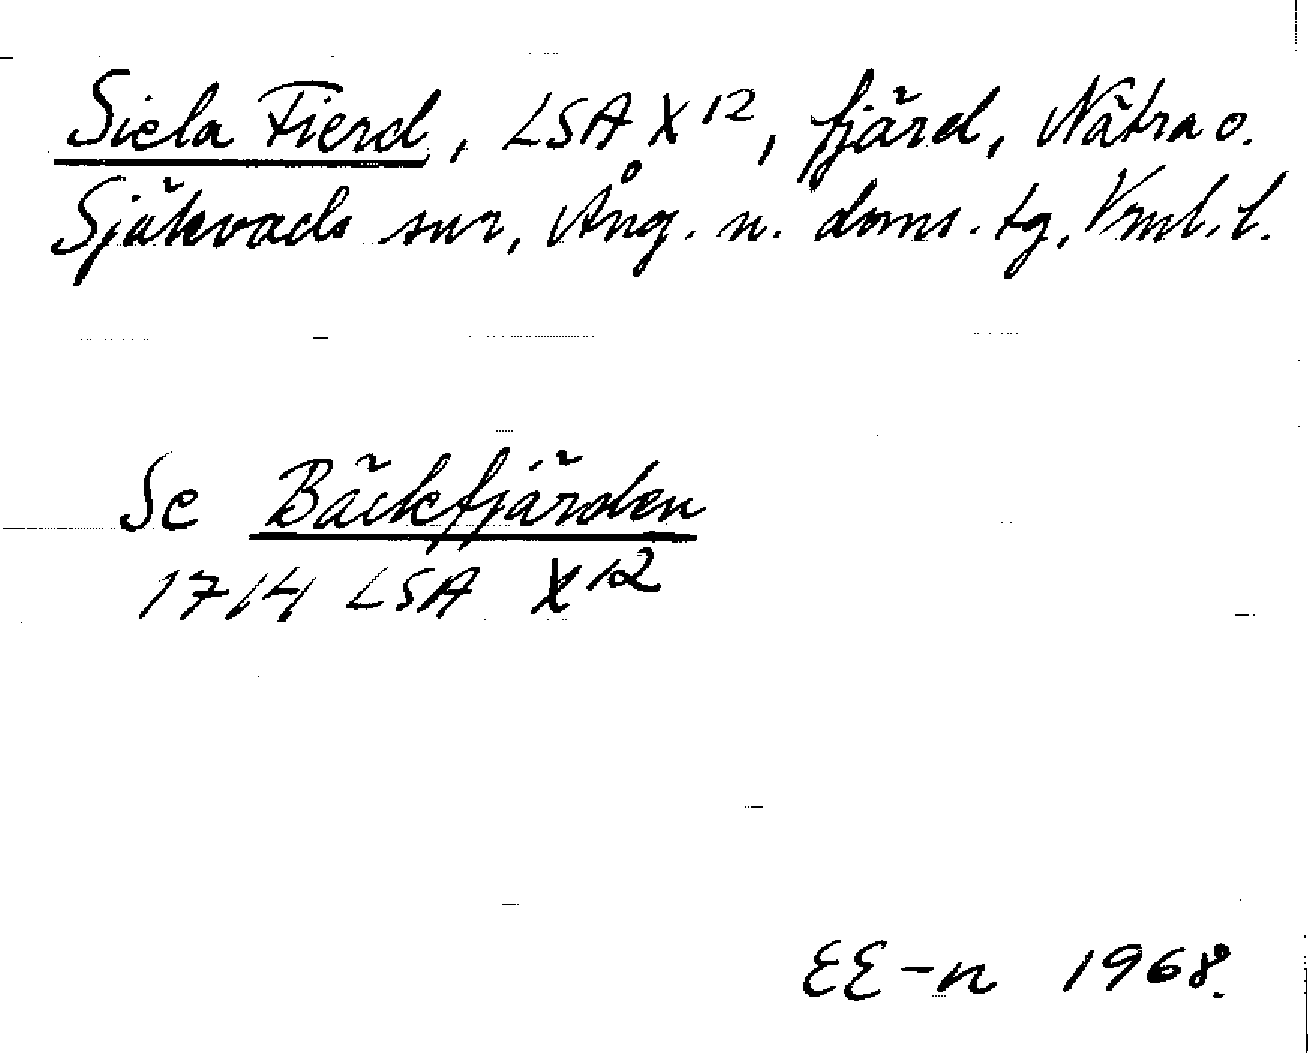 Siela Fierd, LSA X 12, fjärd, Nätra o.
Själevads snr, Ång. n. doms. tg, Vnl. l.
Se Bäckfjärden
1714 LSA X 12
EE-n 1968.